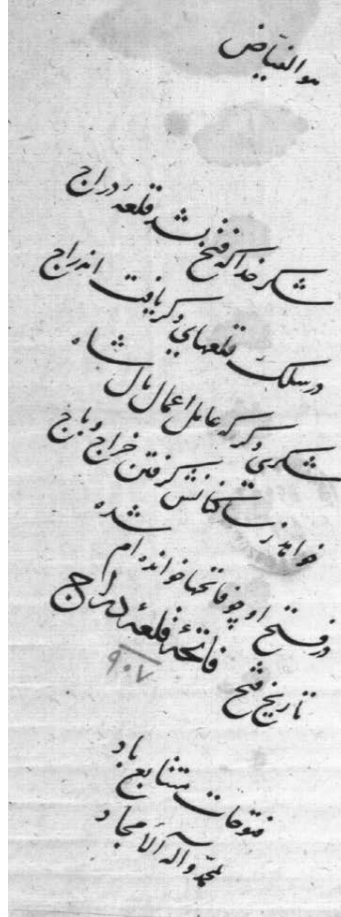 هو الفیاض
شکر خدا که فتح شد قلعهٔ دراج
در سلک قلعهای دکر یافت اندراج
شکری دکر که عامل اعمال مال شاه
خواهد ز ساکنانش کرفتن خراج و باج
در فتح او چو فاتحها خوانده ام شده
تاریخ فتح فاتحهٔ قلعهٔ دراج
۹۰۷
فتوحات متتابع باد
بمحمد وآله الامجاد